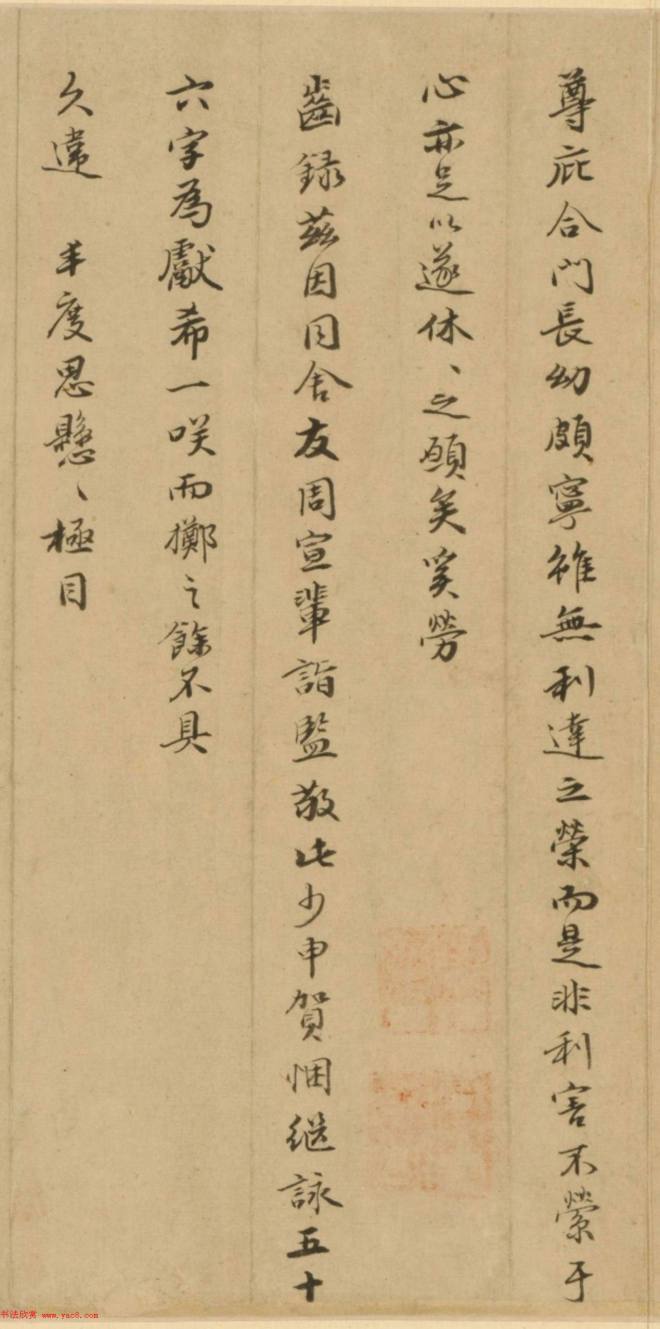 尊庇合門長幼頗寧雖無利達之榮而是非利害不縈于
心亦足以遂休、之願矣奚勞
齒録茲因同舍友周宣輩詣監敬此少申賀悃継詠五十
六字為獻希一咲而擲之餘不具
久違 丰度思懸、極目
书法欣赏 www.yac8.com